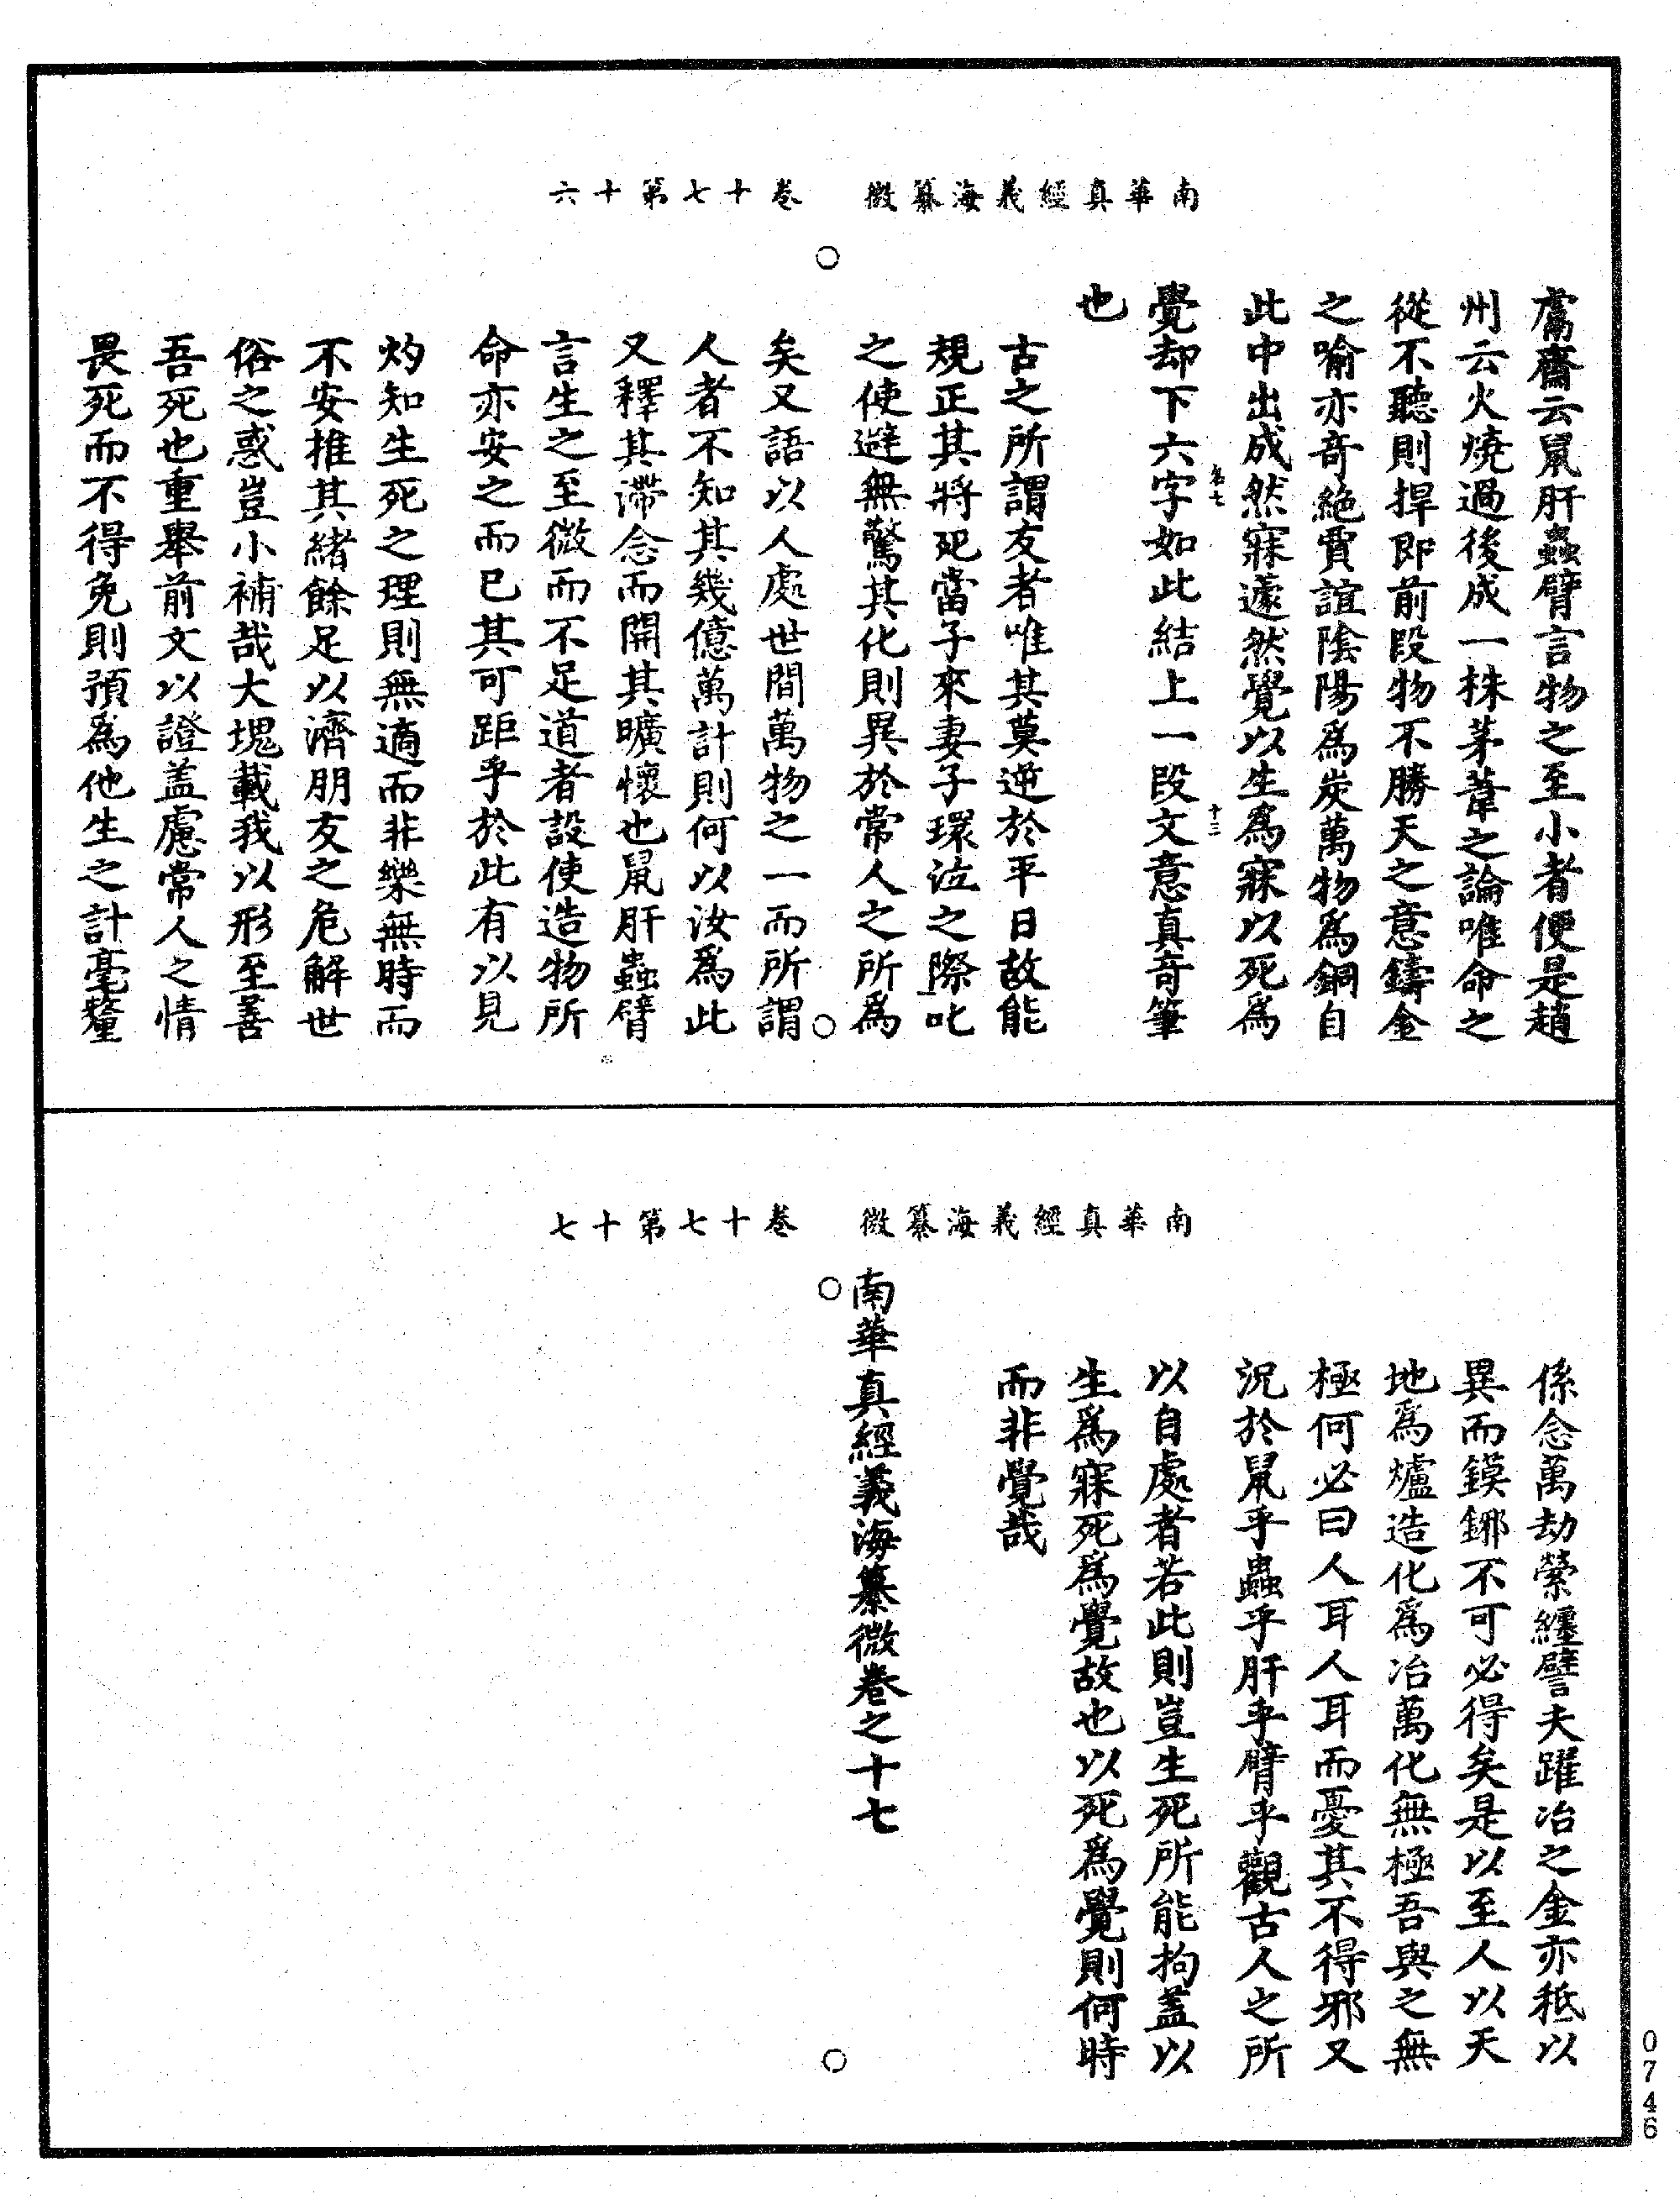 南華真經義海纂微　卷十七第十六
鬳齋云鼠肝蟲臂言物之至小者便是趙
州云火燒過後成一株茅葦之論唯命之
從不聽則捍即前段物不勝天之意鑄金
之喻亦奇絕賈誼陰陽爲炭萬物爲銅自
此中出成然寐蘧然覺以生爲寐以死爲
覺却下六字如此結上一段文意真奇筆
也
十三
古之所謂友者唯其莫逆於平日故能
規正其將死當子來妻子環泣之際叱
之使避無驚其化則異於常人之所爲
矣又語以人處世間萬物之一而所謂
人者不知其幾億萬計則何以汝爲此
又釋其滯念而開其曠懷也鼠肝蟲臂
言生之至微而不足道者設使造物所
命亦安之而已其可距乎於此有以見
灼知生死之理則無適而非樂無時而
不安推其緒餘足以濟朋友之危解世
俗之惑豈小補哉大塊載我以形至善
吾死也重舉前文以證盖慮常人之情
畏死而不得免則預爲他生之計毫釐
南華真經義海纂微　卷十七第十七
係念萬劫縈纏譬夫躍冶之金亦秖以
異而鏌鋣不可必得矣是以至人以天
地爲爐造化爲冶萬化無極吾與之無
極何必曰人耳人耳而憂其不得邪又
況於鼠乎蟲乎肝乎臂乎觀古人之所
以自處者若此則豈生死所能拘盖以
生爲寐死爲覺故也以死爲覺則何時
而非覺哉
南華真經義海纂微卷之十七
0746